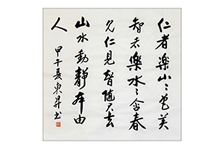 仁者樂山山美
智者樂水水含春
見仁見智隨去
山水動靜由
人 甲午夏 東昇书